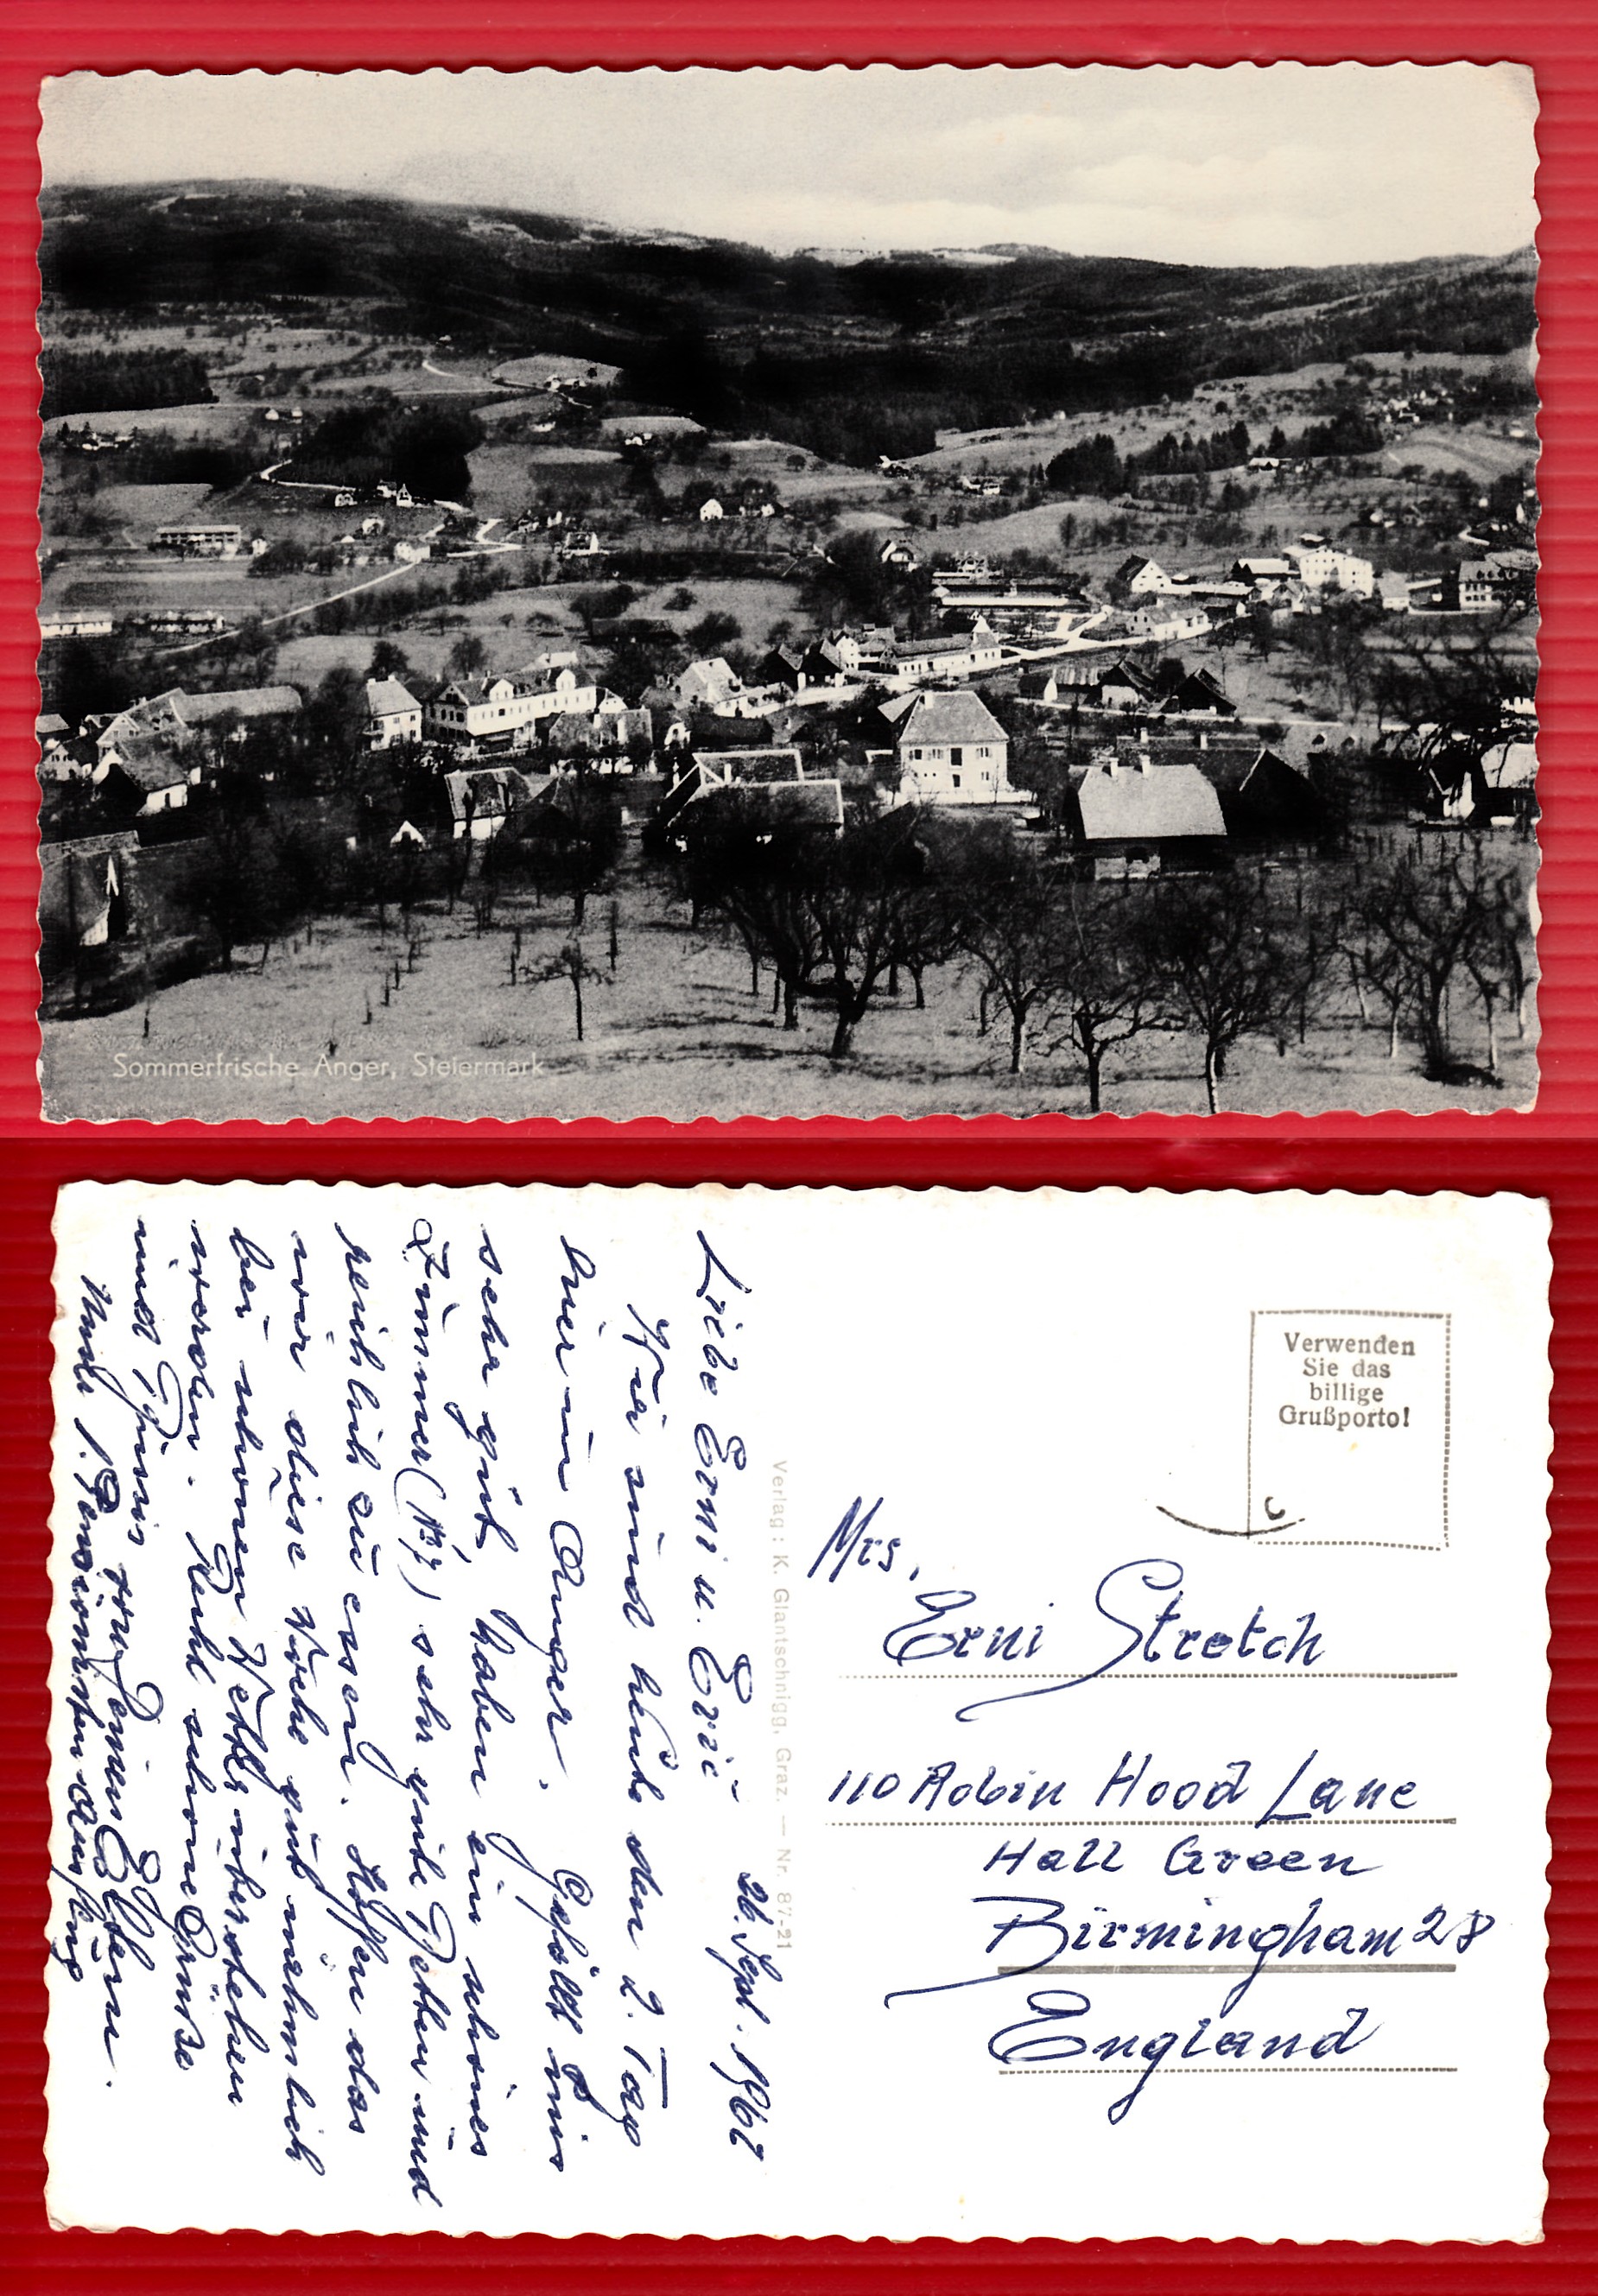 Sommerfrische Anger, Steiermark
Liebe Erni u. Eric
26. Sept. 1962
Wir sind heute den 2. Tag
hier in Anger. Gefällt uns
sehr gut, haben ein schönes
Zimmer (Nr 7) sehr gute Betten und
reichlich zu essen. Hoffen das
wir diese Woche gut nähmlich
bei schönen Wetter überstehen
werden. Recht schöne Grüße
und Bussi von Deinen Eltern.
Unser 1. Pensionisten Ausflug
Verlag: K. Glantschnigg, Graz. — Nr. 87-21
Verwenden
Sie das
billige
Grußporto!
Mrs.
Erni Stretch
110 Robin Hood Lane
Hall Green
Birmingham 28
England